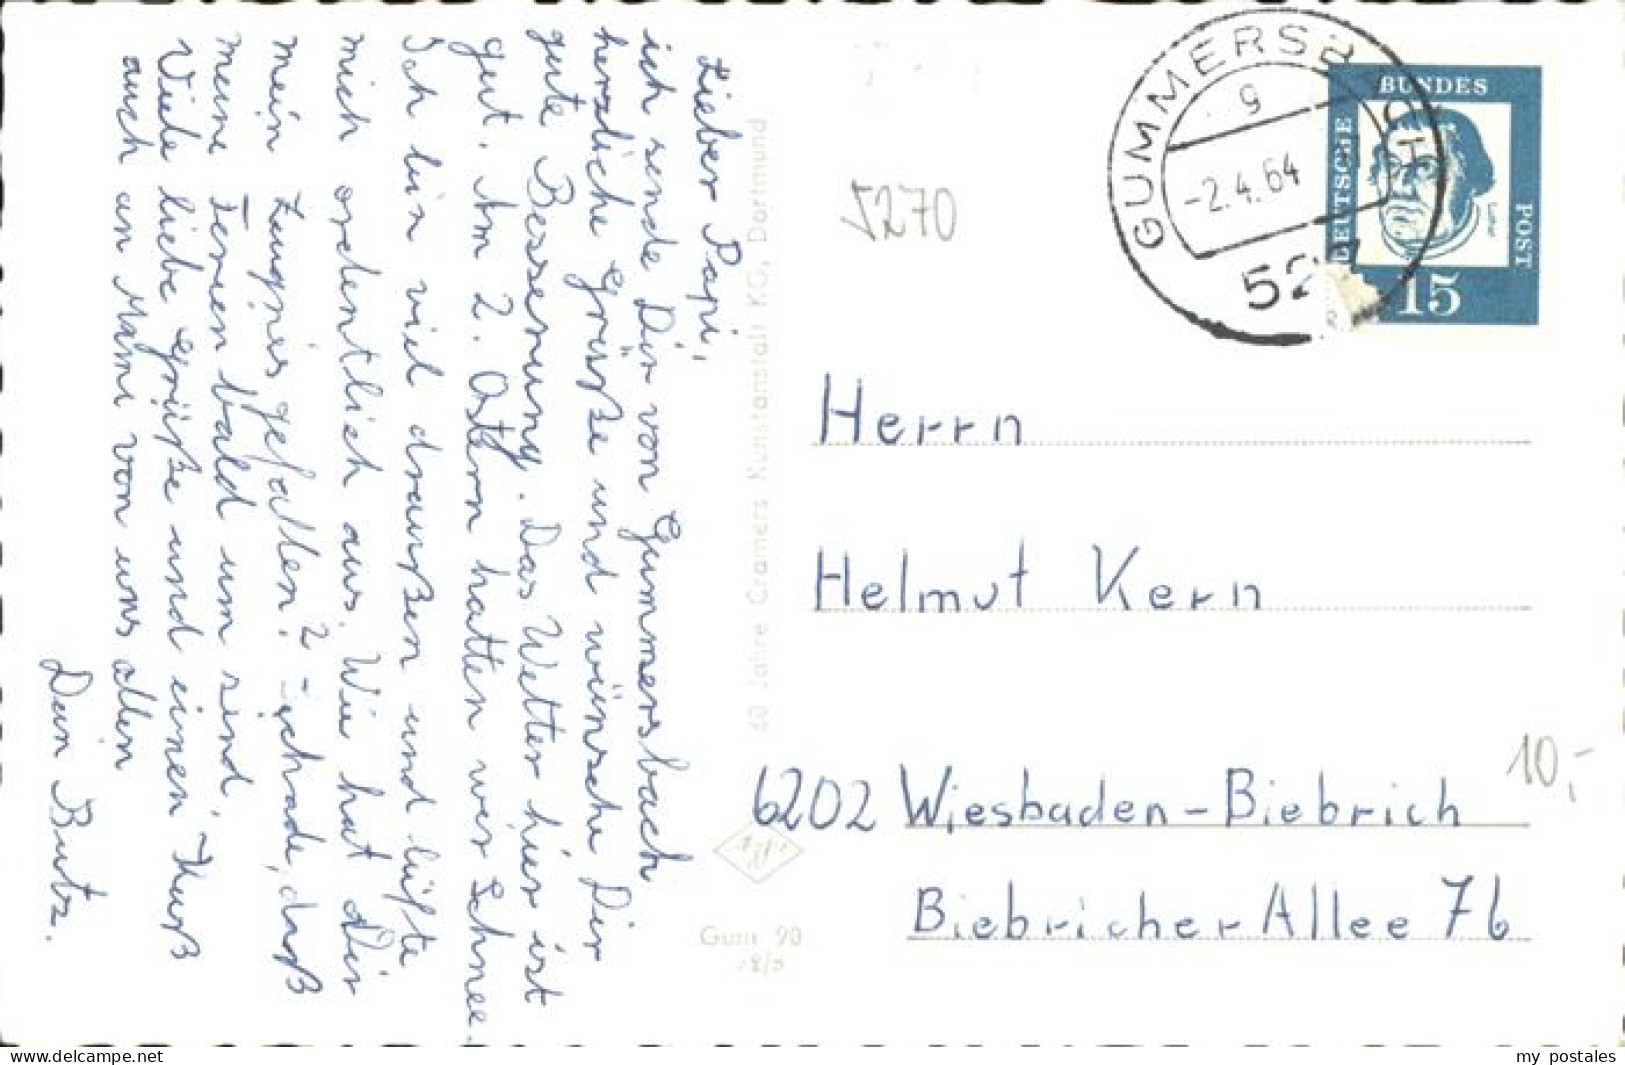 Lieber Papi,
ich sende Dir von Gummersbach
herzliche Grüße und wünsche Dir
gute Besserung. Das Wetter hier ist
gut. Am 2. Ostern hatten wir Schnee.
Ich bin viel draußen und lüfte
mich ordentlich aus. Wie hat Dir
mein Zeugnis gefallen? Schade, daß
meine Ferien bald um sind.
Viele liebe Grüße und einen Kuß
auch an Mami von uns allen
Dein Butz.
60 Jahre Cramers Kunstanstalt KG, Dortmund
5270
GUMMERSBACH
g
-2.4.64
52
DEUTSCHE
BUNDES
POST
15
Herrn
Helmut Kern
6202 Wiesbaden-Biebrich
Biebricher Allee 76
10,-
Gum 90
auch-delcampe.net
my postales